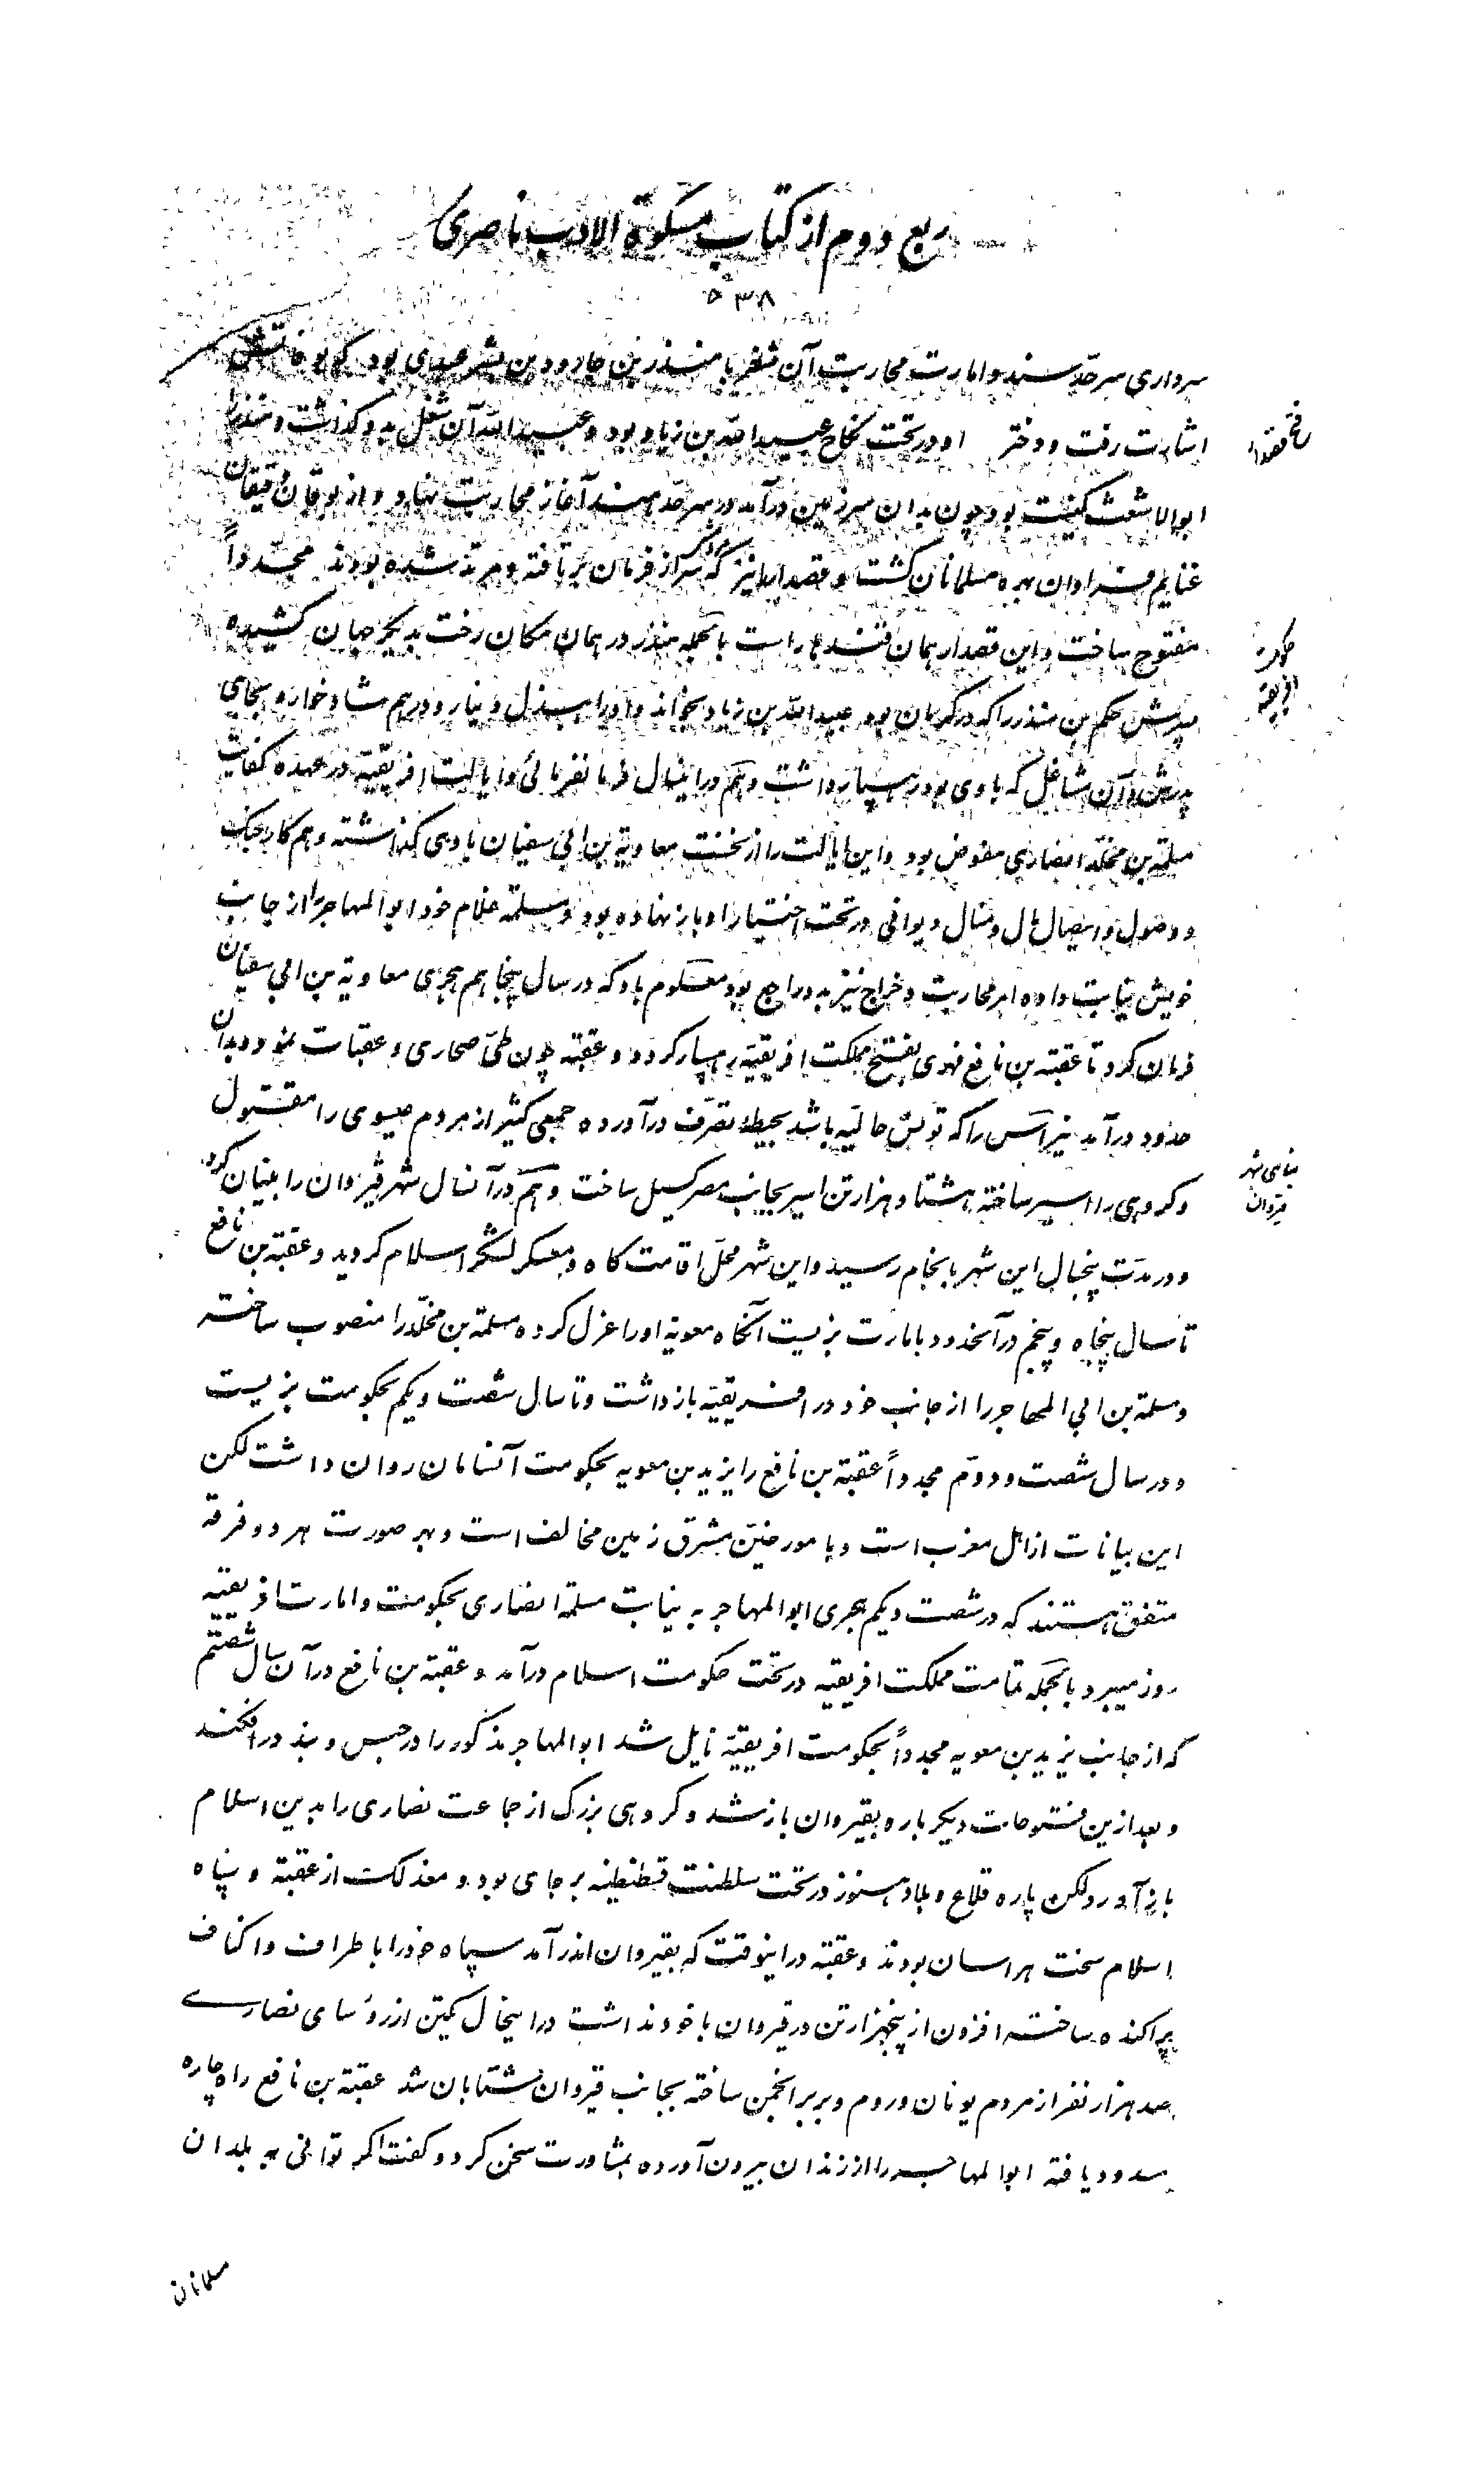 ربع دوم از کتاب مشکوة الادب ناصری
۵۳۸
سرداری سرحد سند و امارت محاربت آن ثغر با منذر بن جارود بن بشر عبدی بود که بوفاتش
اشارت رفت و دختر او در تحت نکاح عبیدالله بن زیاد بود و عبیدالله آن شغل بدو گذاشت و منذر را
ابوالاشعث کنیت بود چون بدان سرزمین درآمد در سرحد هند آغاز محاربت نهاد و از بوقان و قیقان
غنایم فراوان بهره مسلمانان گشت و قصدار را نیز که سر از فرمان برتافته و مرتد شده بودند مجدداً
مفتوح ساخت و این قصدار همان قندهار است بالجمله منذر در همان مکان رخت بدیگر جهان کشیده
پسرش حکم بن منذر را که در کرمان بود عبیدالله بن زیاد بخواند و او را ببذل دینار و درهم شادخوار و بجای
پدرش در آن مشاغل که با وی بود رهسپار داشت و هم در اینسال فرمانفرمائی و ایالت افریقیة در عهده کفایت
مسلمة بن مخلد انصاری مفوض بود و این ایالت را از نخست معاویة بن ابی سفیان با وی گذاشته و هم کار جنگ
و وصول و ایصال مال و منال دیوانی در تحت اختیار او باز نهاده بود و مسلمة غلام خود ابوالمهاجر را از جانب
خویش نیابت داده امر محاربت و خراج نیز بدو راجع بود معلوم باد که در سال پنجاهم هجری معاویة بن ابی سفیان
فرمان کرد تا عقبة بن نافع فهری بفتح مملکت افریقیة رهسپار گردد و عقبة چون طیّ صحاری و عقبات نمود و بدان
حدود درآمد نیز آسس را که تونس حالیّه باشد بحیطه تصرّف درآورده جمعی کثیر از مردم عیسوی را مقتول
و گروهی را اسیر ساخته هشتاد هزار تن اسیر بجانب مصر گسیل ساخت و هم در آنسال شهر قیروان را بنیان کرد
و در مدّت پنجسال این شهر بانجام رسید و این شهر محلّ اقامت گاه و معسکر لشکر اسلام گردید و عقبة بن نافع
تا سال پنجاه و پنجم در آنحدود بامارت بزیست آنگاه معویة او را عزل کرده مسلمة بن مخلّد را منصوب ساخته
و مسلمة بن ابی المهاجر را از جانب خود در افریقیّه بازداشت و تا سال شصت و یکم بحکومت بزیست
و در سال شصت و دوّم مجدداً عقبة بن نافع را یزید بن معویه بحکومت آنسامان روان داشت لکن
این بیانات از اهل مغرب است و با مورخین مشرق زمین مخالف است و بهر صورت هر دو فرقه
متفق هستند که در شصت و یکم هجری ابوالمهاجر به نیابت مسلمة انصاری بحکومت و امارت افریقیه
روز میبرد بالجمله تمامت مملکت افریقیه در تحت حکومت اسلام درآمد و عقبة بن نافع در آن سال شصتم
که از جانب یزید بن معویه مجدداً بحکومت افریقیّة نایل شد ابوالمهاجر مذکور را در حبس و بند درافکند
و بعد ازین فتوحات دیگر باره بقیروان باز شد و گروهی بزرگ از جماعت نصاری را بدین اسلام
باز آورد لکن پاره قلاع و بلاد هنوز در تحت سلطنت قسطنطنیه بر جای بود و معذلک از عقبة و سپاه
اسلام سخت هراسان بودند و عقبة در اینوقت که بقیروان اندر آمد سپاه خود را باطراف و اکناف
پراکنده ساخته افزون از پنجهزار تن در قیروان با خود نداشت در اینحال یکتن از رؤسای نصاری
صد هزار نفر از مردم یونان و روم و بربر انجمن ساخته بجانب قیروان شتابان شد عقبة بن نافع راه چاره
مسدود یافته ابوالمهاجر را از زندان بیرون آورده بمشاورت سخن کرد و گفت اگر توانی به بلدان
مسلمانان
فتح قصدار
حکومت
افریقیة
بنای شهر
قیروان